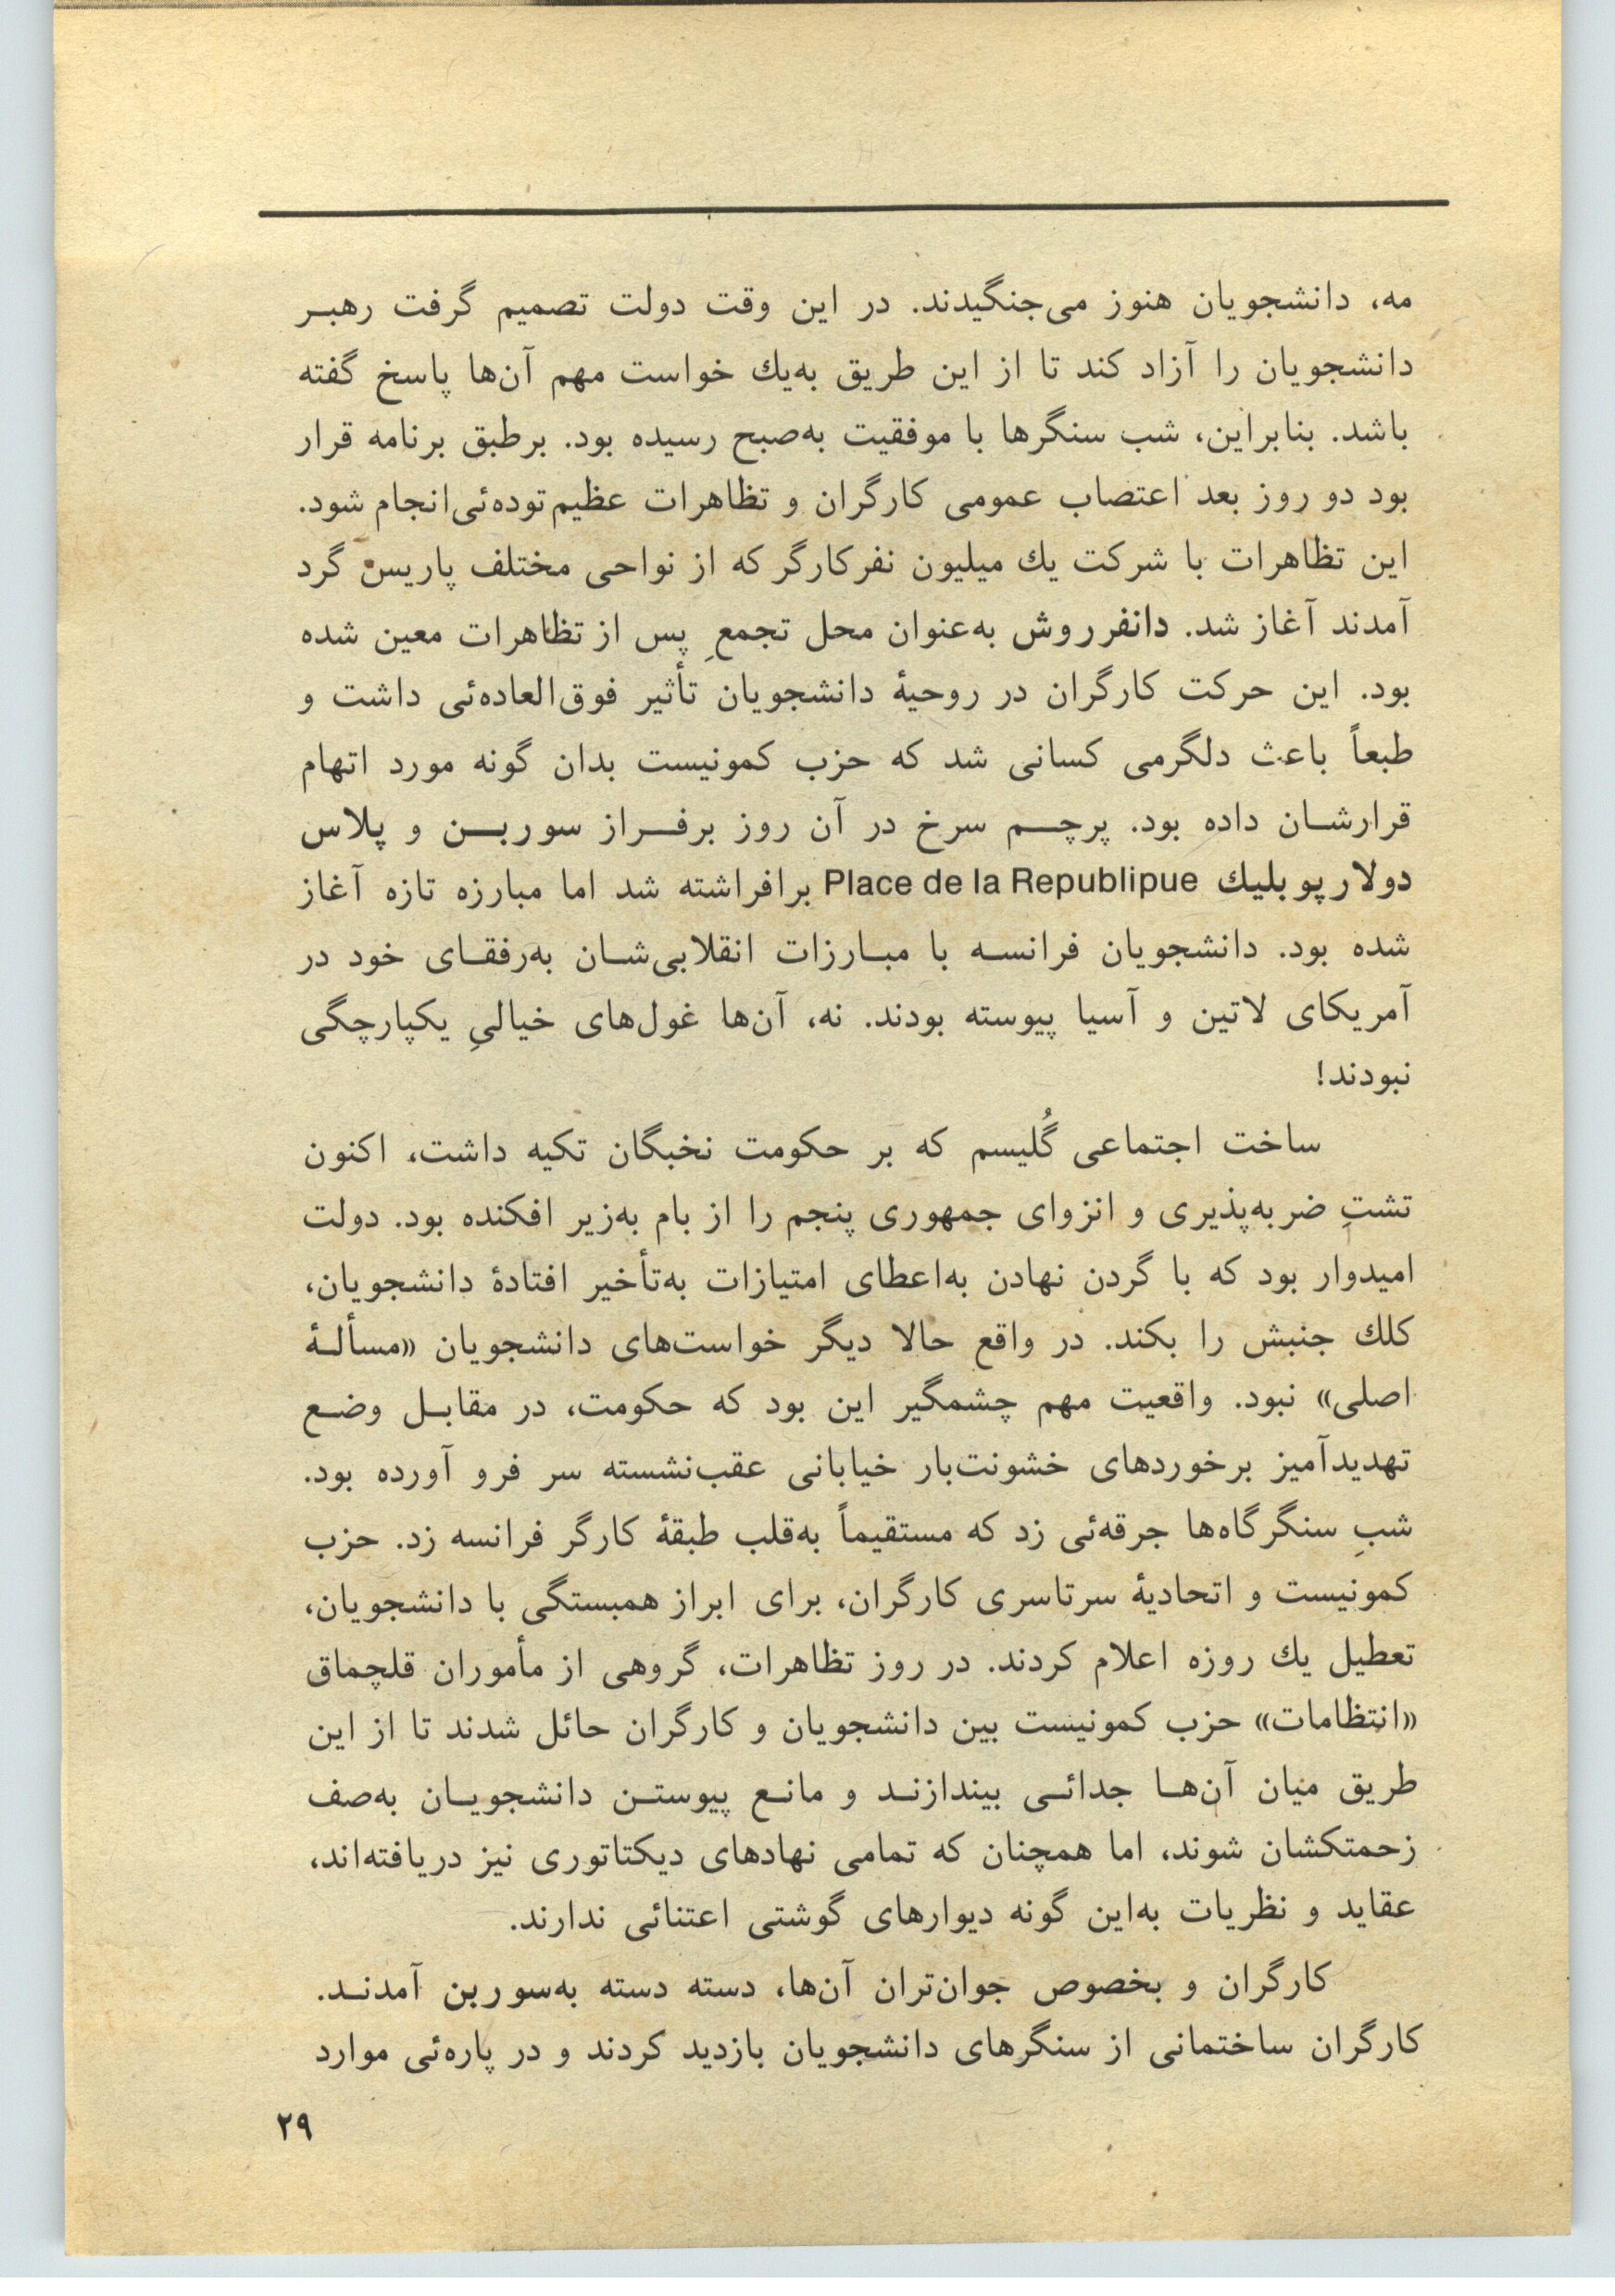 مه، دانشجویان هنوز می‌جنگیدند. در این وقت دولت تصمیم گرفت رهبر
دانشجویان را آزاد کند تا از این طریق به‌یك خواست مهم آن‌ها پاسخ گفته
باشد. بنابراین، شب سنگرها با موفقیت به‌صبح رسیده بود. برطبق برنامه قرار
بود دو روز بعد اعتصاب عمومی کارگران و تظاهرات عظیم توده‌ئی انجام شود.
این تظاهرات با شرکت یك میلیون نفر کارگر که از نواحی مختلف پاریس گرد
آمدند آغاز شد. دانفر روش به‌عنوان محل تجمعِ پس از تظاهرات معین شده
بود. این حرکت کارگران در روحیهٔ دانشجویان تأثیر فوق‌العاده‌ئی داشت و
طبعاً باعث دلگرمی کسانی شد که حزب کمونیست بدان گونه مورد اتهام
قرارشان داده بود. پرچم سرخ در آن روز برفراز سوربن و پلاس
دولارپوبلیك Place de la Republipue برافراشته شد اما مبارزه تازه آغاز
شده بود. دانشجویان فرانسه با مبارزات انقلابی‌شان به‌رفقای خود در
آمریکای لاتین و آسیا پیوسته بودند. نه، آن‌ها غول‌های خیالیِ یکپارچگی
نبودند!
ساخت اجتماعی گُلیسم که بر حکومت نخبگان تکیه داشت، اکنون
تشتِ ضربه‌پذیری و انزوای جمهوری پنجم را از بام به‌زیر افکنده بود. دولت
امیدوار بود که با گردن نهادن به‌اعطای امتیازات به‌تأخیر افتادهٔ دانشجویان،
کلك جنبش را بکند. در واقع حالا دیگر خواست‌های دانشجویان «مسألهٔ
اصلی» نبود. واقعیت مهم چشمگیر این بود که حکومت، در مقابل وضع
تهدیدآمیز برخوردهای خشونت‌بار خیابانی عقب‌نشسته سر فرو آورده بود.
شبِ سنگرگاه‌ها جرقه‌ئی زد که مستقیماً به‌قلب طبقهٔ کارگر فرانسه زد. حزب
کمونیست و اتحادیهٔ سرتاسری کارگران، برای ابراز همبستگی با دانشجویان،
تعطیل یك روزه اعلام کردند. در روز تظاهرات، گروهی از مأموران قلچماق
«انتظامات» حزب کمونیست بین دانشجویان و کارگران حائل شدند تا از این
طریق میان آن‌ها جدائی بیندازند و مانع پیوستن دانشجویان به‌صف
زحمتکشان شوند، اما همچنان که تمامی نهادهای دیکتاتوری نیز دریافته‌اند،
عقاید و نظریات به‌این گونه دیوارهای گوشتی اعتنائی ندارند.
کارگران و بخصوص جوان‌تران آن‌ها، دسته دسته به‌سوربن آمدند.
کارگران ساختمانی از سنگرهای دانشجویان بازدید کردند و در پاره‌ئی موارد
۲۹